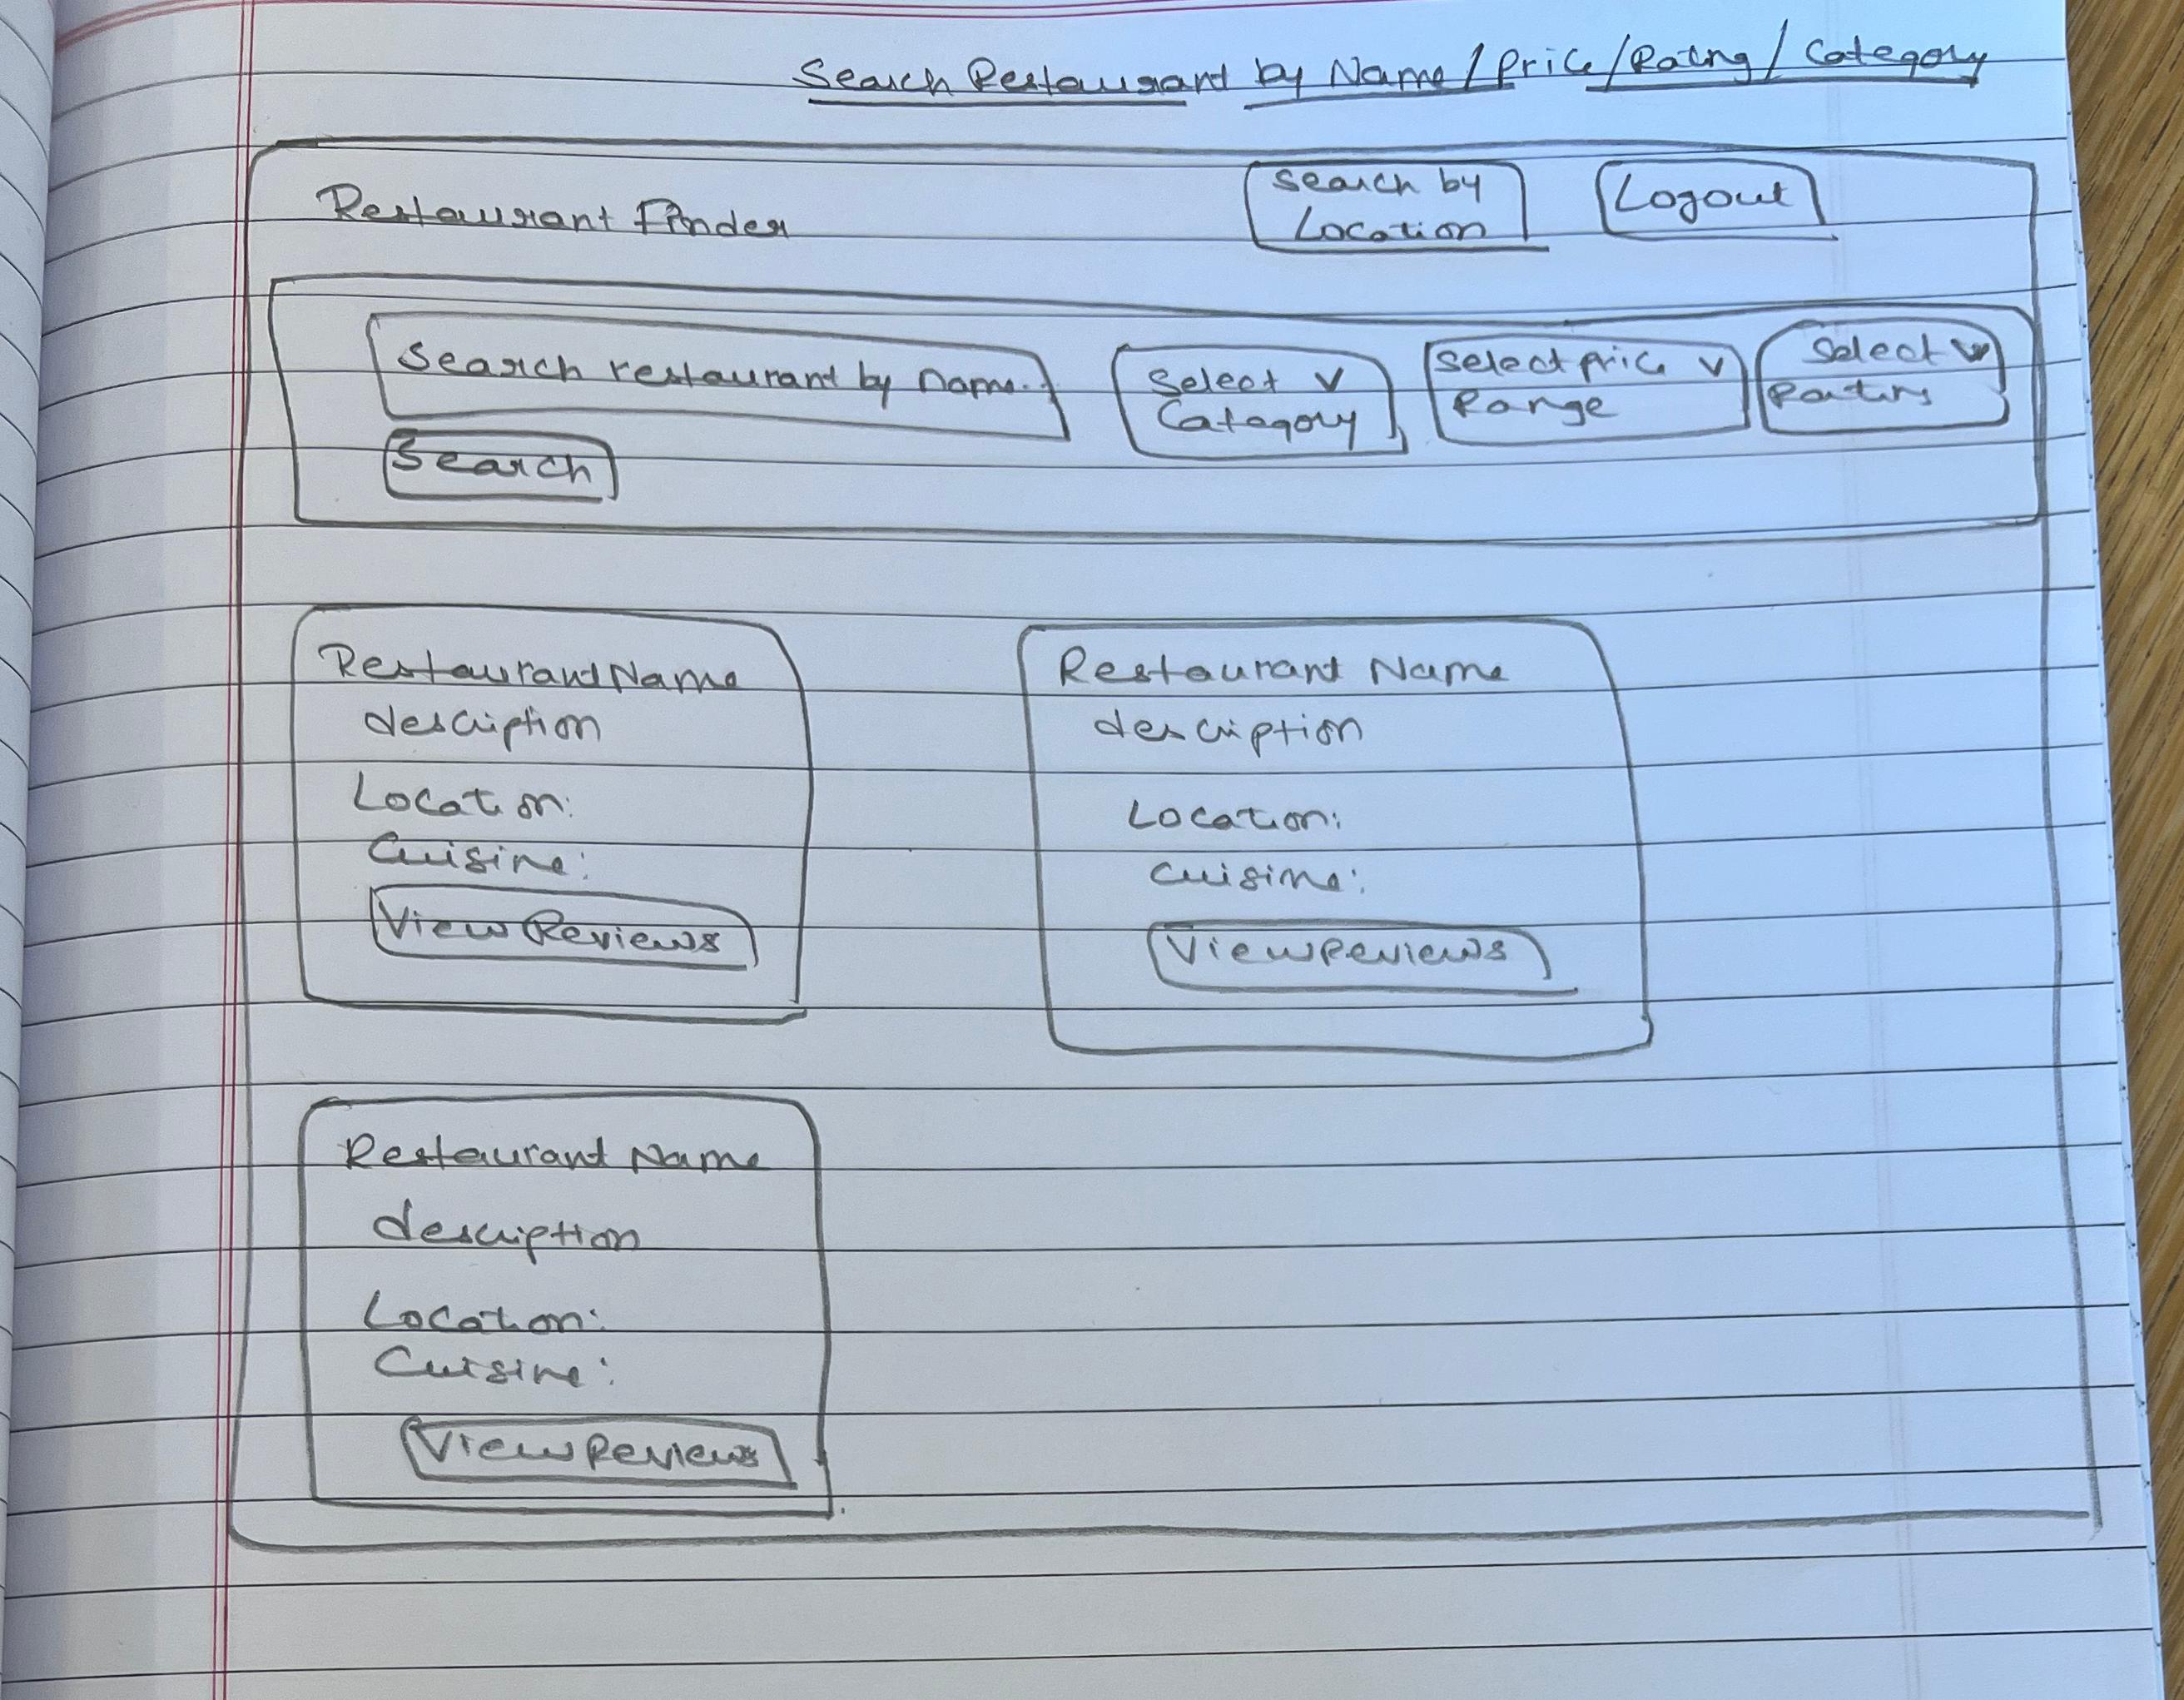 Search Restaurant by Name / Price / Rating / Category
Restaurant Finder
Search by
Location
Logout
Search restaurant by name.
Select v
Category
Select price v
Range
Select v
Search
Restaurant Name
description
Location:
Cuisine:
View Reviews
Restaurant Name
description
Location:
Cuisine:
View Reviews
Restaurant Name
description
Location:
Cuisine:
View Reviews